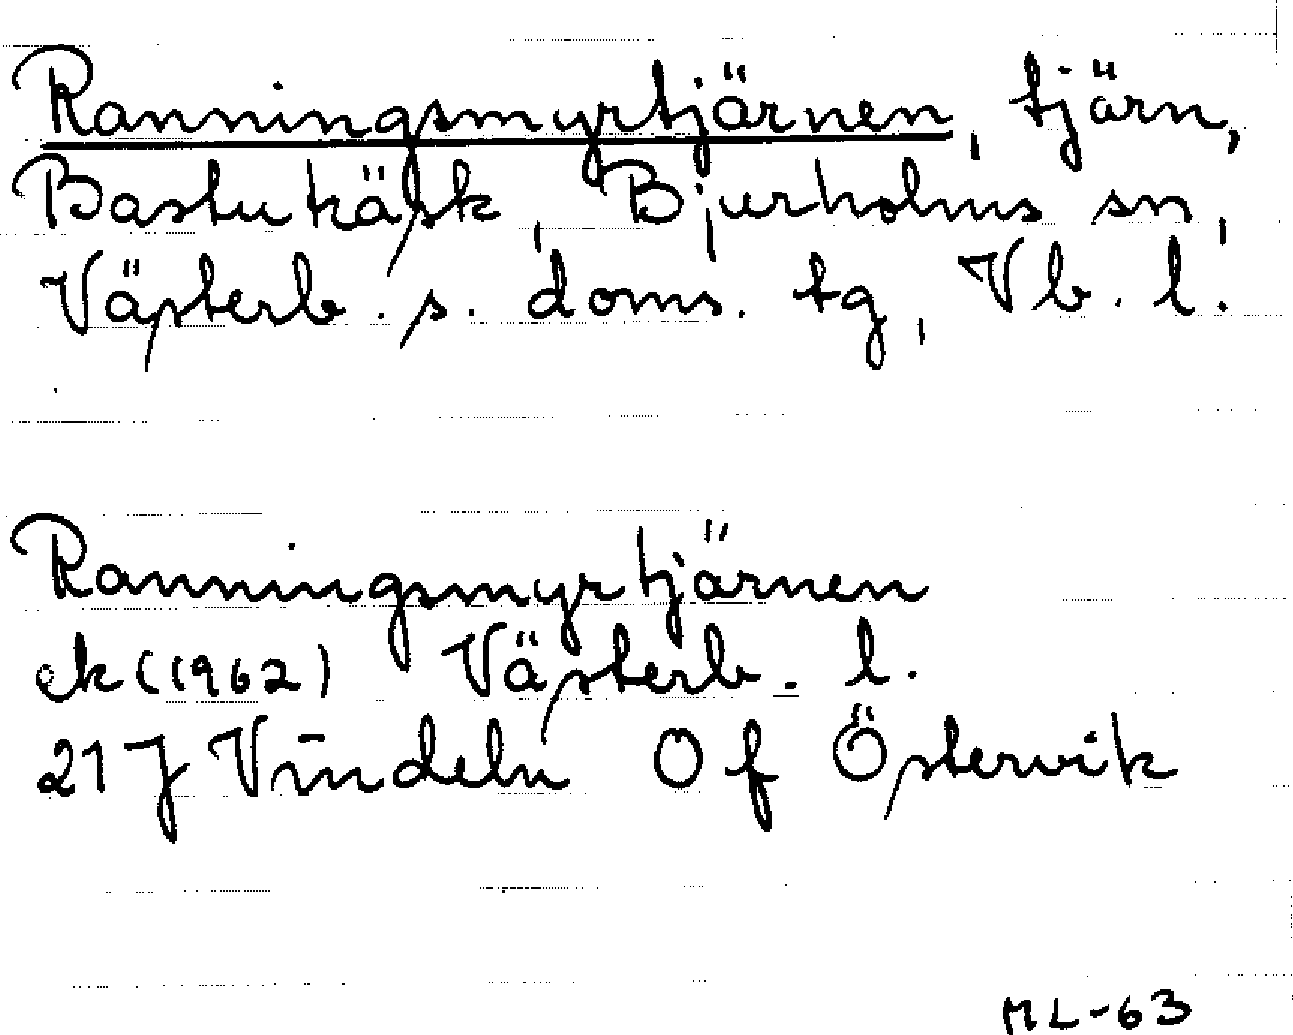 Ranningsmyrtjärnen, tjärn,
Bastuträsk, Bjurholms sn,
Västerb. s. doms. tg, Vb. l.
Ranningsmyrtjärnen
ek (1962) Västerb. l.
21 J Vindeln 0 f Östervik
ML-63